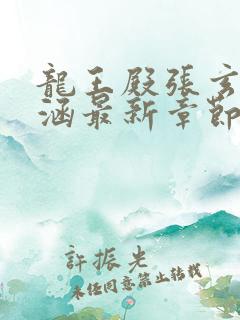 龍王殿張玄
涵最新章節
許振光
未經同意禁止轉載